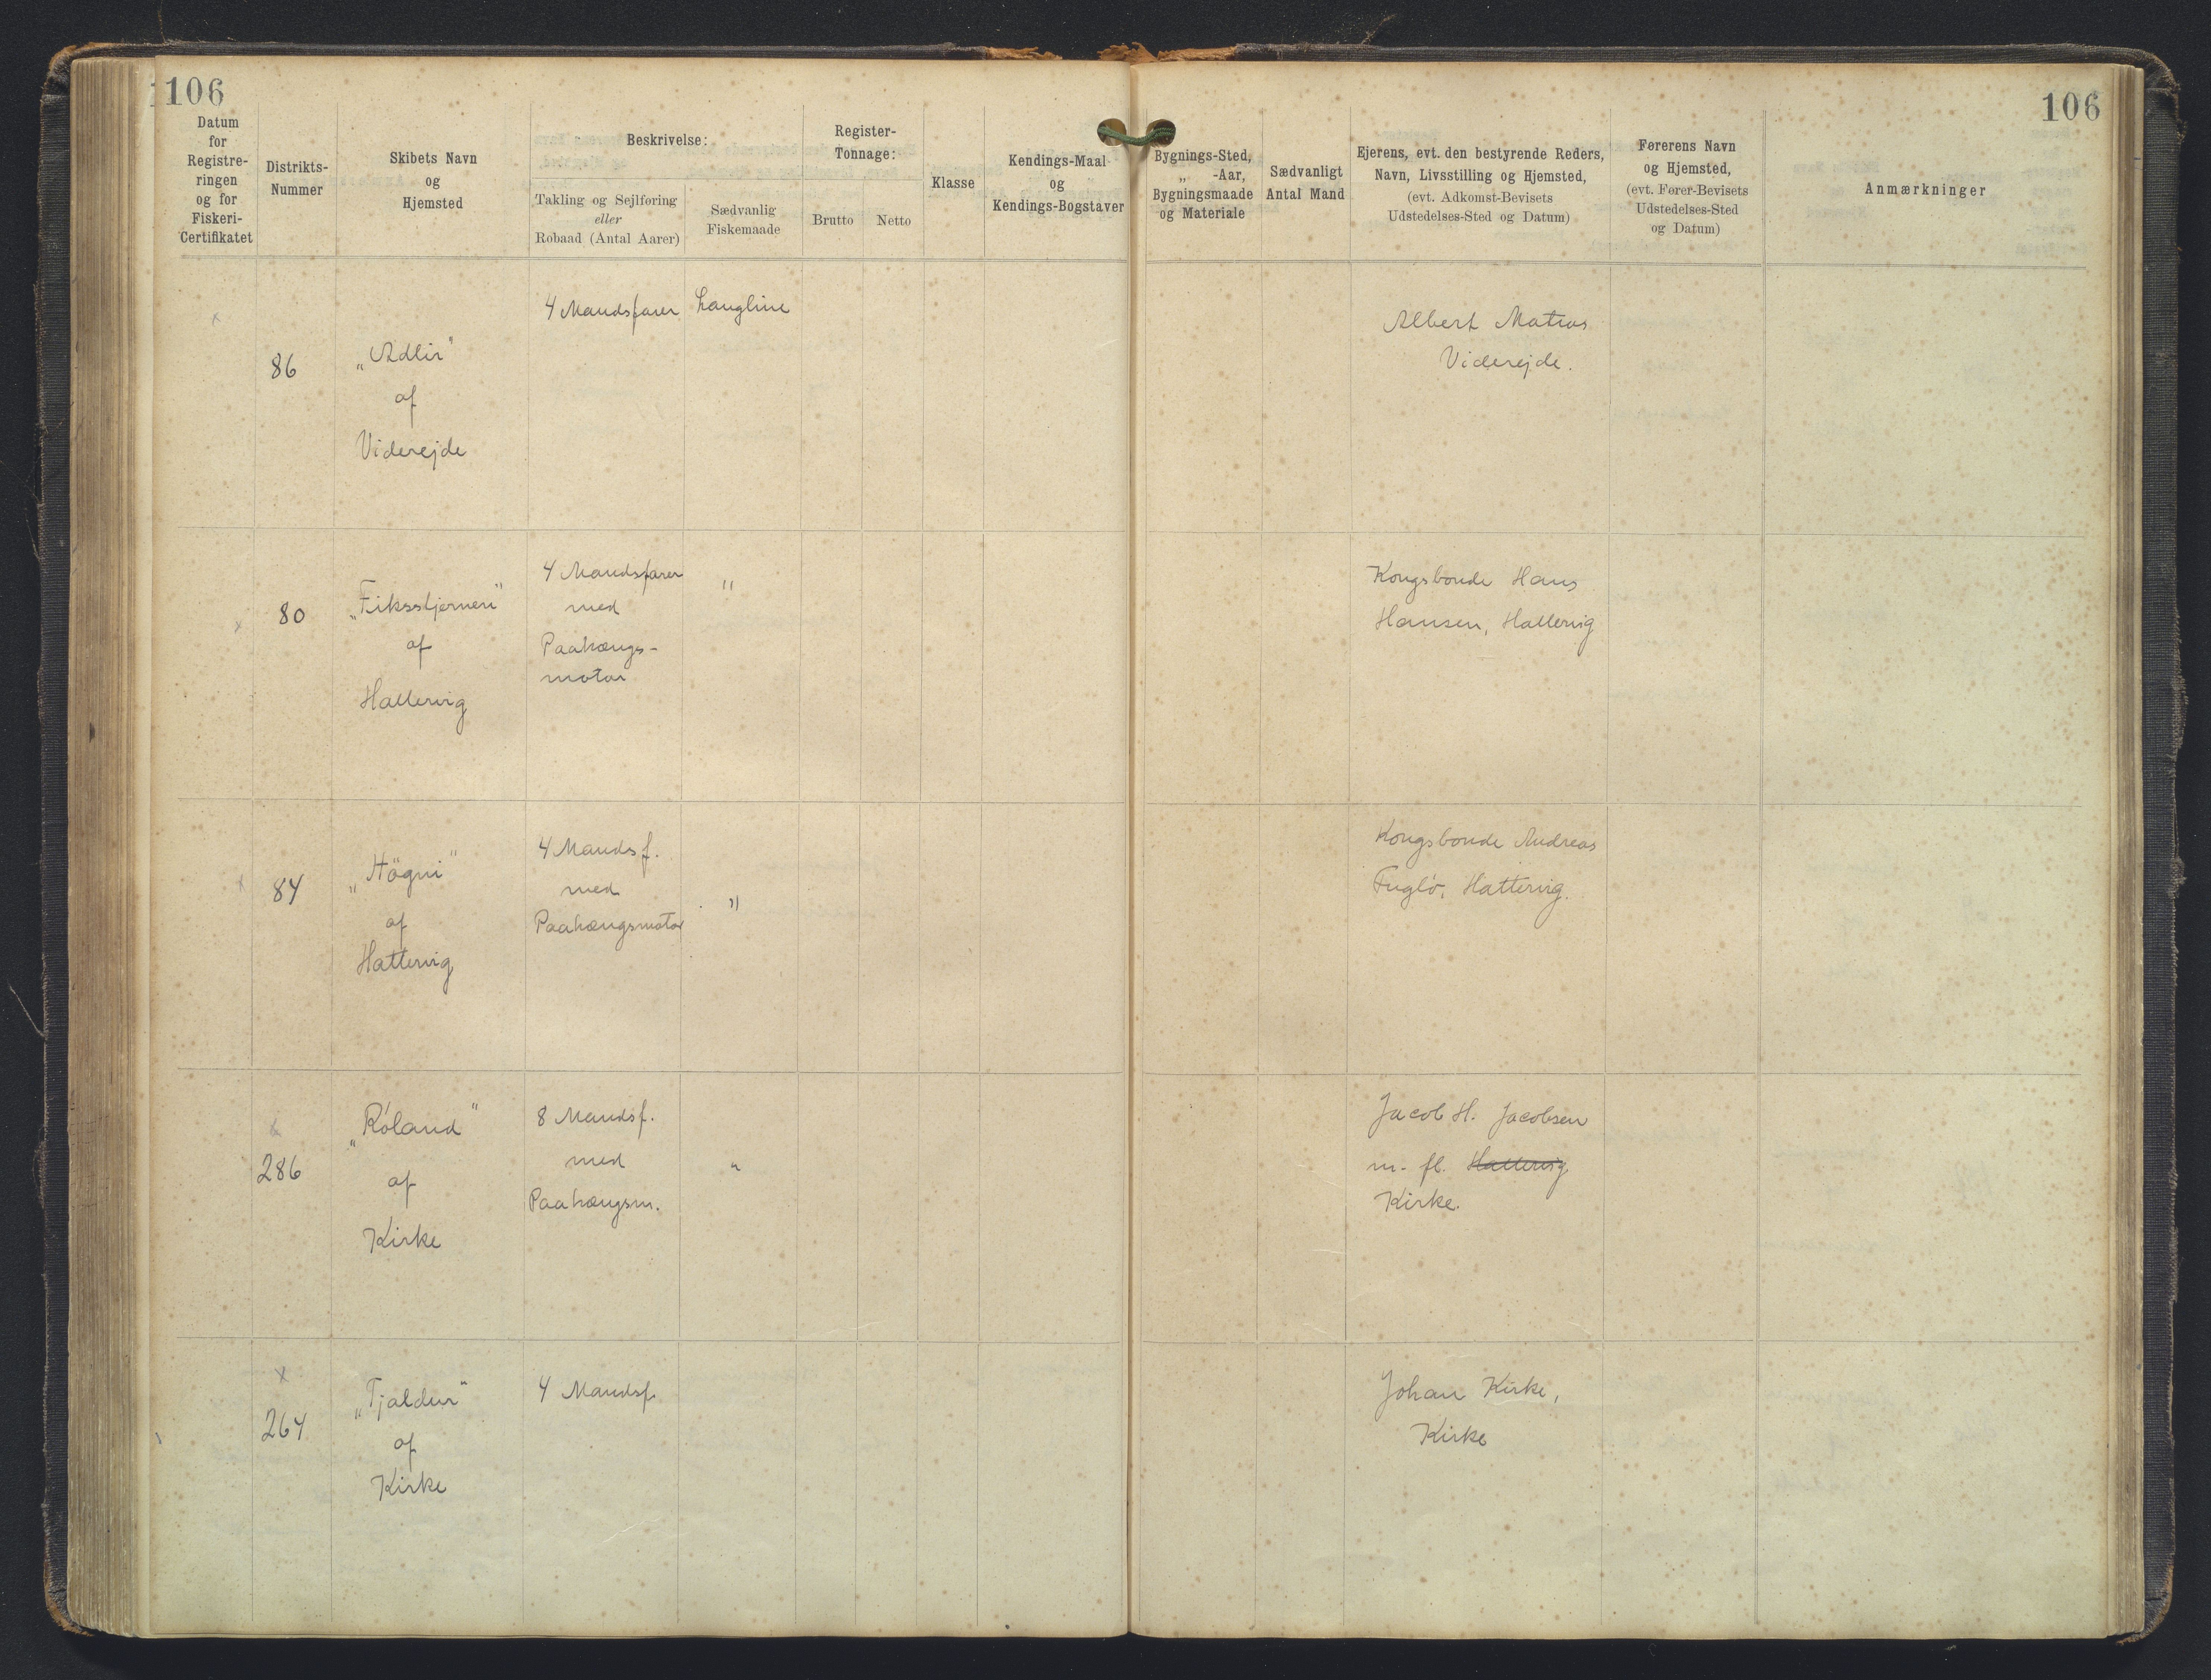 106
106
Datum
for
Registre-
ringen
og for
Fiskeri-
Certifikatet
Distrikts-
Nummer
Skibets Navn
og
Hjemsted
Beskrivelse:
Takling og Sejlføring
eller
Robaad (Antal Aarer)
Sædvanlig
Fiskemaade
Register-
Tonnage:
Brutto
Netto
Klasse
Kendings-Maal
og
Kendings-Bogstaver
Bygnings-Sted,
„ -Aar,
Bygningsmaade
og Materiale
Sædvanligt
Antal Mand
Ejerens, evt. den bestyrende Reders,
Navn, Livsstilling og Hjemsted,
(evt. Adkomst-Bevisets
Udstedelses-Sted og Datum)
Førerens Navn
og Hjemsted,
(evt. Fører-Bevisets
Udstedelses-Sted
og Datum)
Anmærkninger
x
86
„Adlir"
af
Viderejde
4 Mandsfarer
Langline
Albert Matras
Viderejde.
x
80
„Fiksstjernen"
af
Hattervig
4 Mandsfarer
med
Paahængs-
motor
"
Kongsbonde Hans
Hansen, Hattervig
x
84
„Högni"
af
Hattervig
4 Mandsf.
med
Paahængsmotor
"
Kongsbonde Andreas
Fuglö, Hattervig.
x
286
„Róland"
af
Kirke
8 Mandsf.
med
Paahængsm.
"
Jacob H. Jacobsen
m. fl. Hattervig
Kirke.
x
264
„Tjaldur"
af
Kirke
4 Mandsf.
Johan Kirke,
Kirke